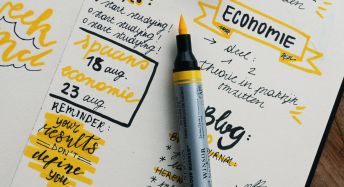 o start studying!
o start studying!
o start studying!
18 aug.
economie
23 aug.
REMINDER:
your
Results
DON'T
define
you
ECONOMIE
→ deel:
1 2
theorie in praktijk
omzetten
Blog:
WINSOR